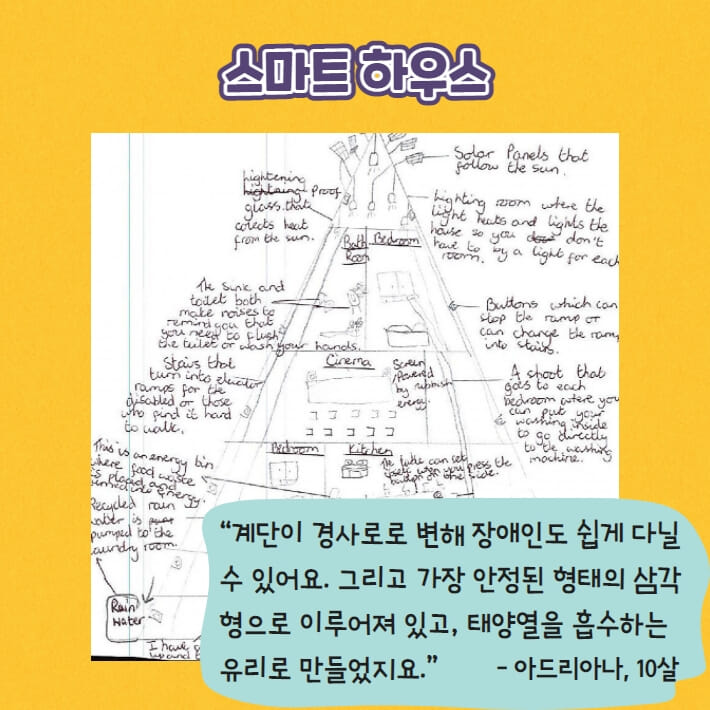 스마트 하우스
Solar Panels that
follow the sun.
Lightening
Proof
glass that
colects heat
from the sun.
Lighting room where the
light heats and lights the
house so you don't
have to by a light for each
room.
Bath
Room
Bedroom
The sink and
toilet both
make noises to
remind you that
you need to flush
the toilet or wash your hands.
Buttons which can
stop the ramp or
can change the ramp
into stairs.
Stairs that
turn into elevator
ramps for the
disabled or those
who find it hard
to walk.
Cinema
Screen
Powered
by rubbish
energy.
A shoot that
goes to each
bedroom where you
can put your
washing inside
to go directly
to the washing
machine.
Bedroom
Kitchen
The table can set
itself when you press the
button on the side.
This is an energy bin
where food waste
is placed and
turned into energy.
Recycled rain
water is
pumped to the
laundry room
Rain
Water
I have
“계단이 경사로로 변해 장애인도 쉽게 다닐
수 있어요. 그리고 가장 안정된 형태의 삼각
형으로 이루어져 있고, 태양열을 흡수하는
유리로 만들었지요.”
- 아드리아나, 10살